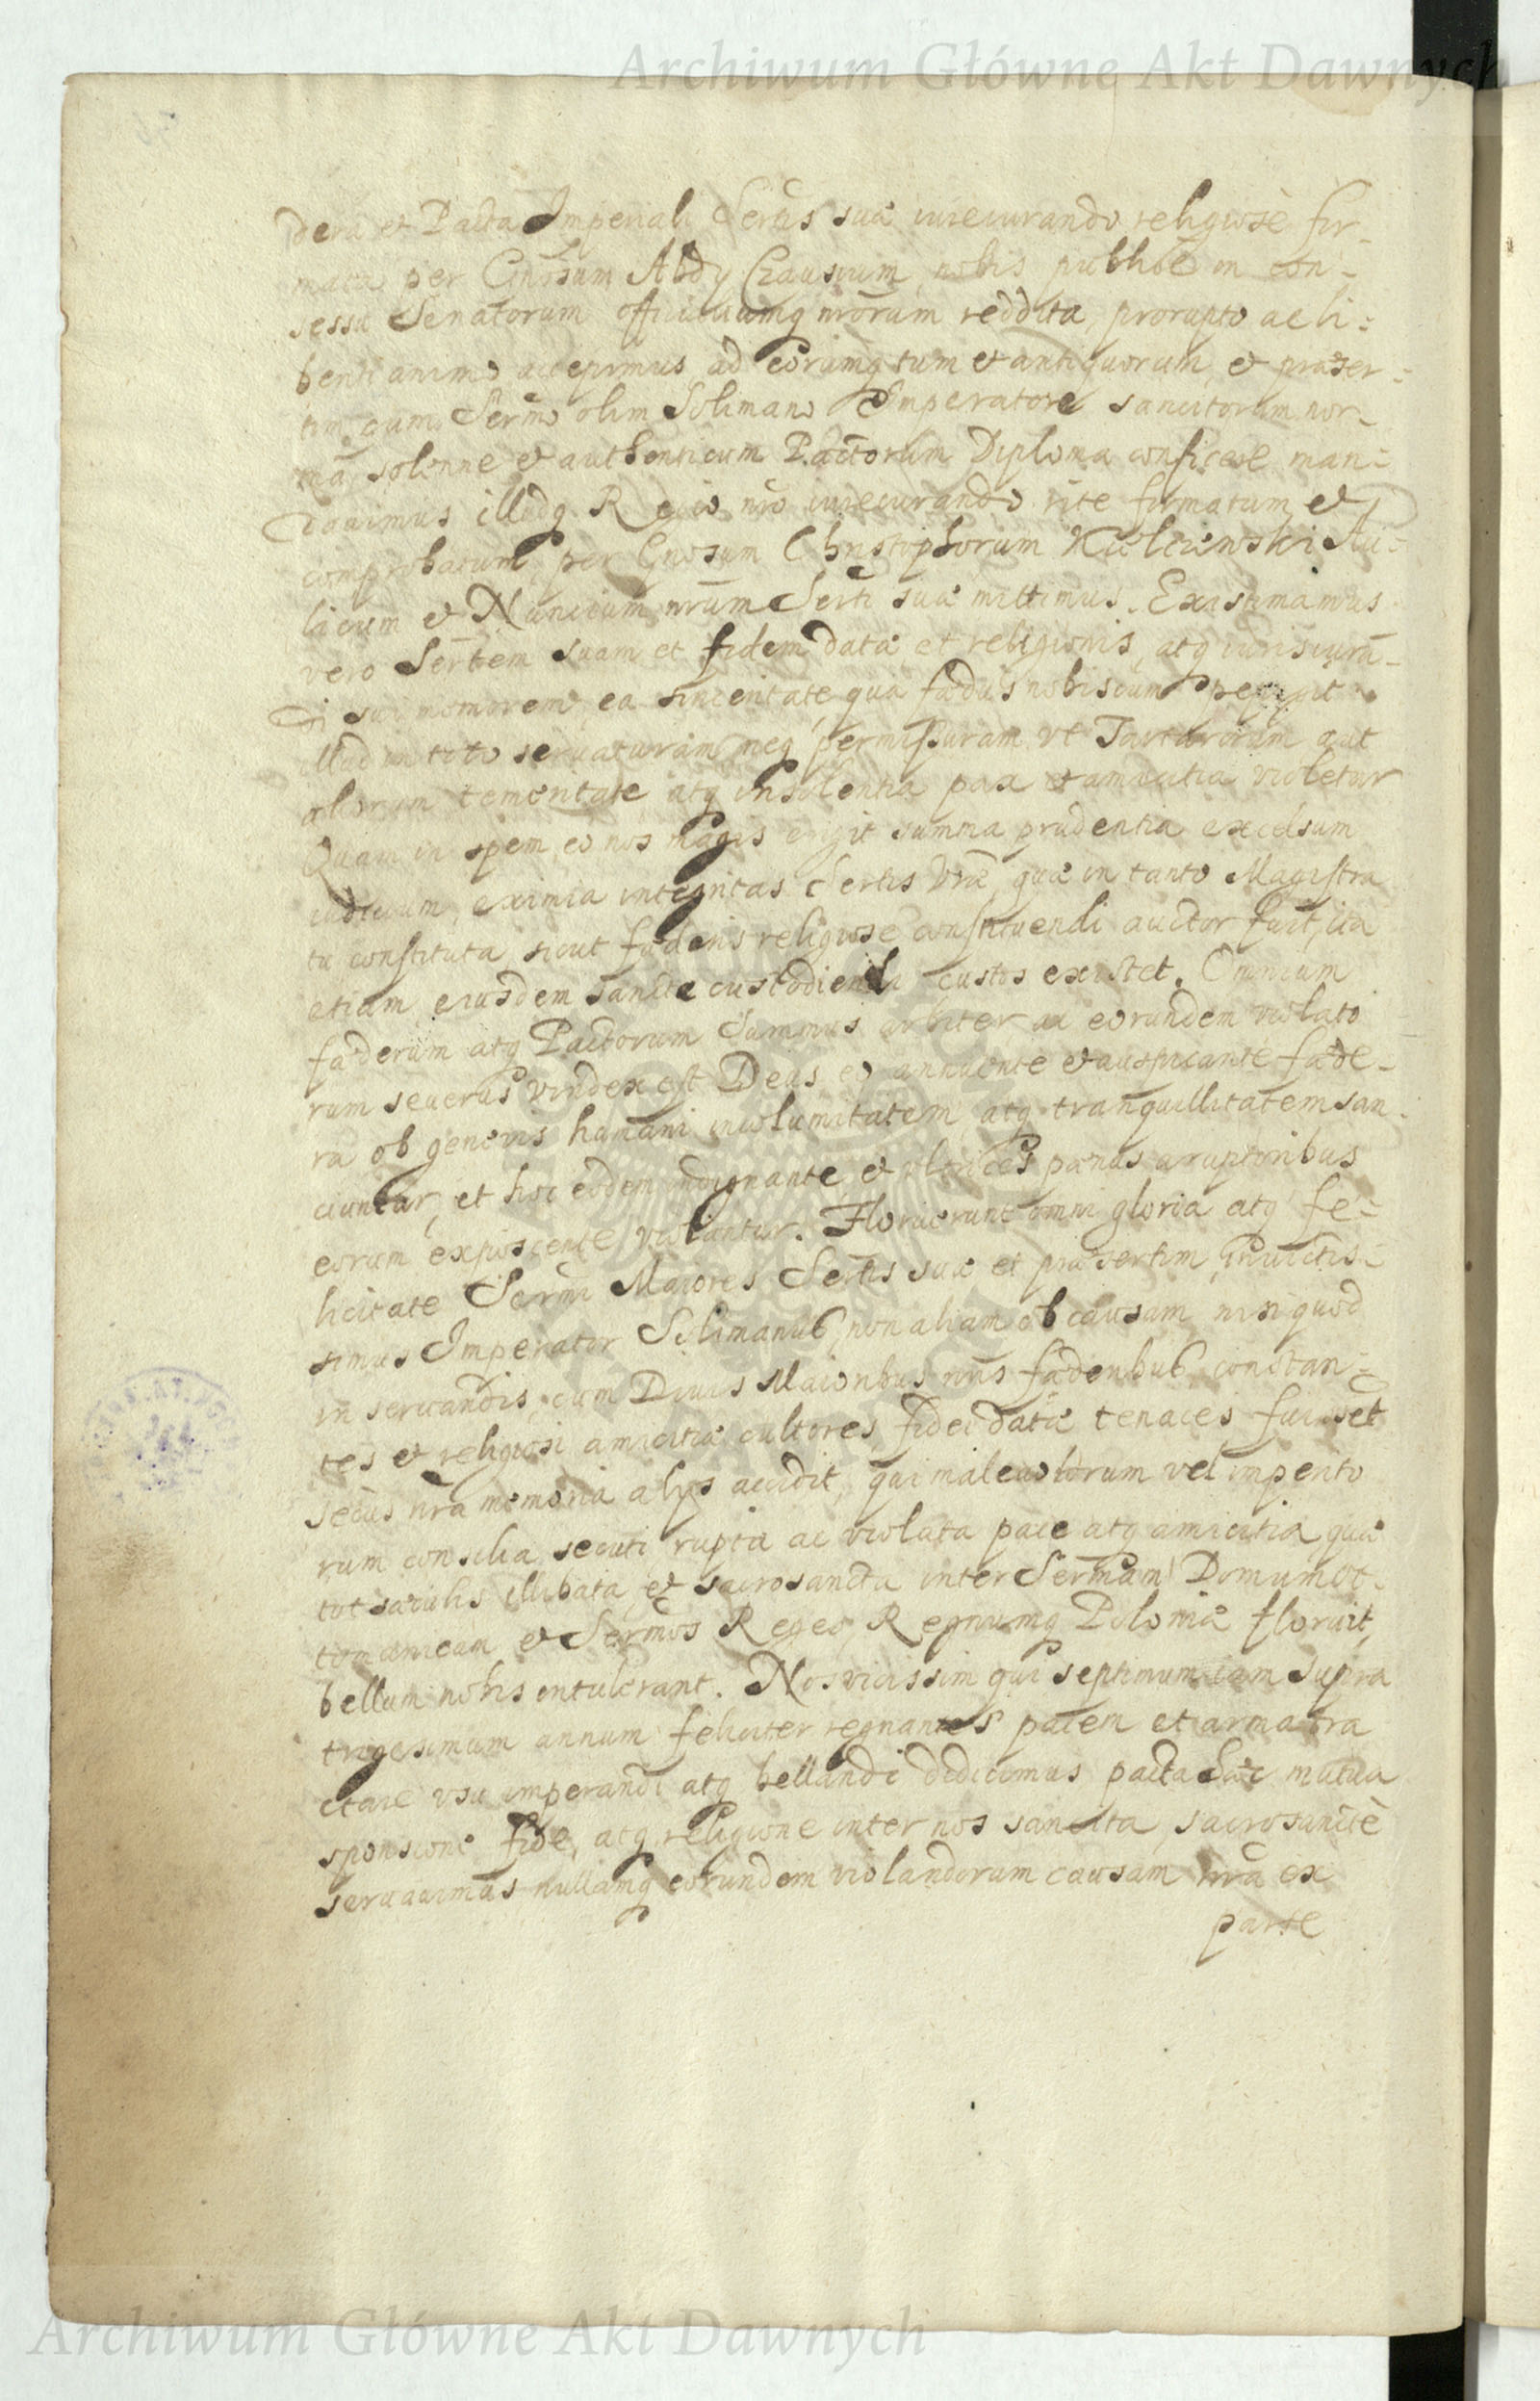 Archiwum Główne Akt Dawnych
dera et Pacta Imperiali Sertis suæ iureiurando religiosè fir-
mata per Gnosum Abdy Czausium nobis publicè in con-
sessu Senatorum officialiumq nrorum reddita, prorupto ac li-
benti animo accepimus ad eorumq tum et antiquorum, et præser-
tim cum Sermo olim Solimano Imperatore sancitorum nor-
mã solenne et authenticum Pactorum Diploma conficere man-
dauimus illudq Regio nro iureiurando rite firmatum et
comprobatum per Gnosum Christophorum Au-
licum et Nuncium nrum Serti suæ mittimus. Existimamus
vero Sertem suam et fidem datæ et religionis, atq iurisiurã-
di sui memorem ea sinceritate qua fædus nobiscum pepigit
illud in toto seruaturam neq permissuram vt Tartarorum aut
aliorum temeritate atq insolentia pax et amicitia violetur
Quam in spem eo nos magis erigit summa prudentia excelsum
iudicium, eximia integritas Sertis Vræ, quæ in tanto Magistra
tu constituta, sicut fæderis religiose constituendi auctor fuit, ita
etiam eiusdem sancte custodiendi custos existet. Omnium
fæderum atq Pactorum summus arbiter ac eorundem violato
rum seuerus vindex est Deus eo annuente et auspicante fæde-
ra ob generis humani incolumitatem atq tranquillitatem san-
ciuntur, et hoc eodem indignante et ultrices pænas a ruptoribus
eorum exposcente violantur. Floruerunt omni gloria atq fe-
licitate Sermi Maiores Sertis suæ et præsertim inuictis-
simus Imperator Solimanus, non aliam ob causam, nisi quod
in seruandis cum Diuis Maioribus nris fæderibus, constan-
tes et religiosi amicitiæ cultores, fidei datæ tenaces fuisset
secus nra memoria alys accidit, qui maleuolorum vel imperito
rum consilia secuti rupta ac violata pace atq amicitia quæ
tot sæculis illibata, et sacrosancta inter Sermam Domum Ot-
tomanicam et Sermos Reges, Regnumq Poloniæ floruit,
bellum nobis intulerant. Nos vicissim qui septimum iam supra
trigesimum annum feliciter regnantes pacem et arma tra
ctare vsu imperandi atq bellandi didicimus pacta hæc mutua
sponsione fide, atq religione inter nos sancita, sacrosanctè
seruauimus nullamq eorundem violandorum causam nra ex
parte
Archiwum Główne Akt Dawnych